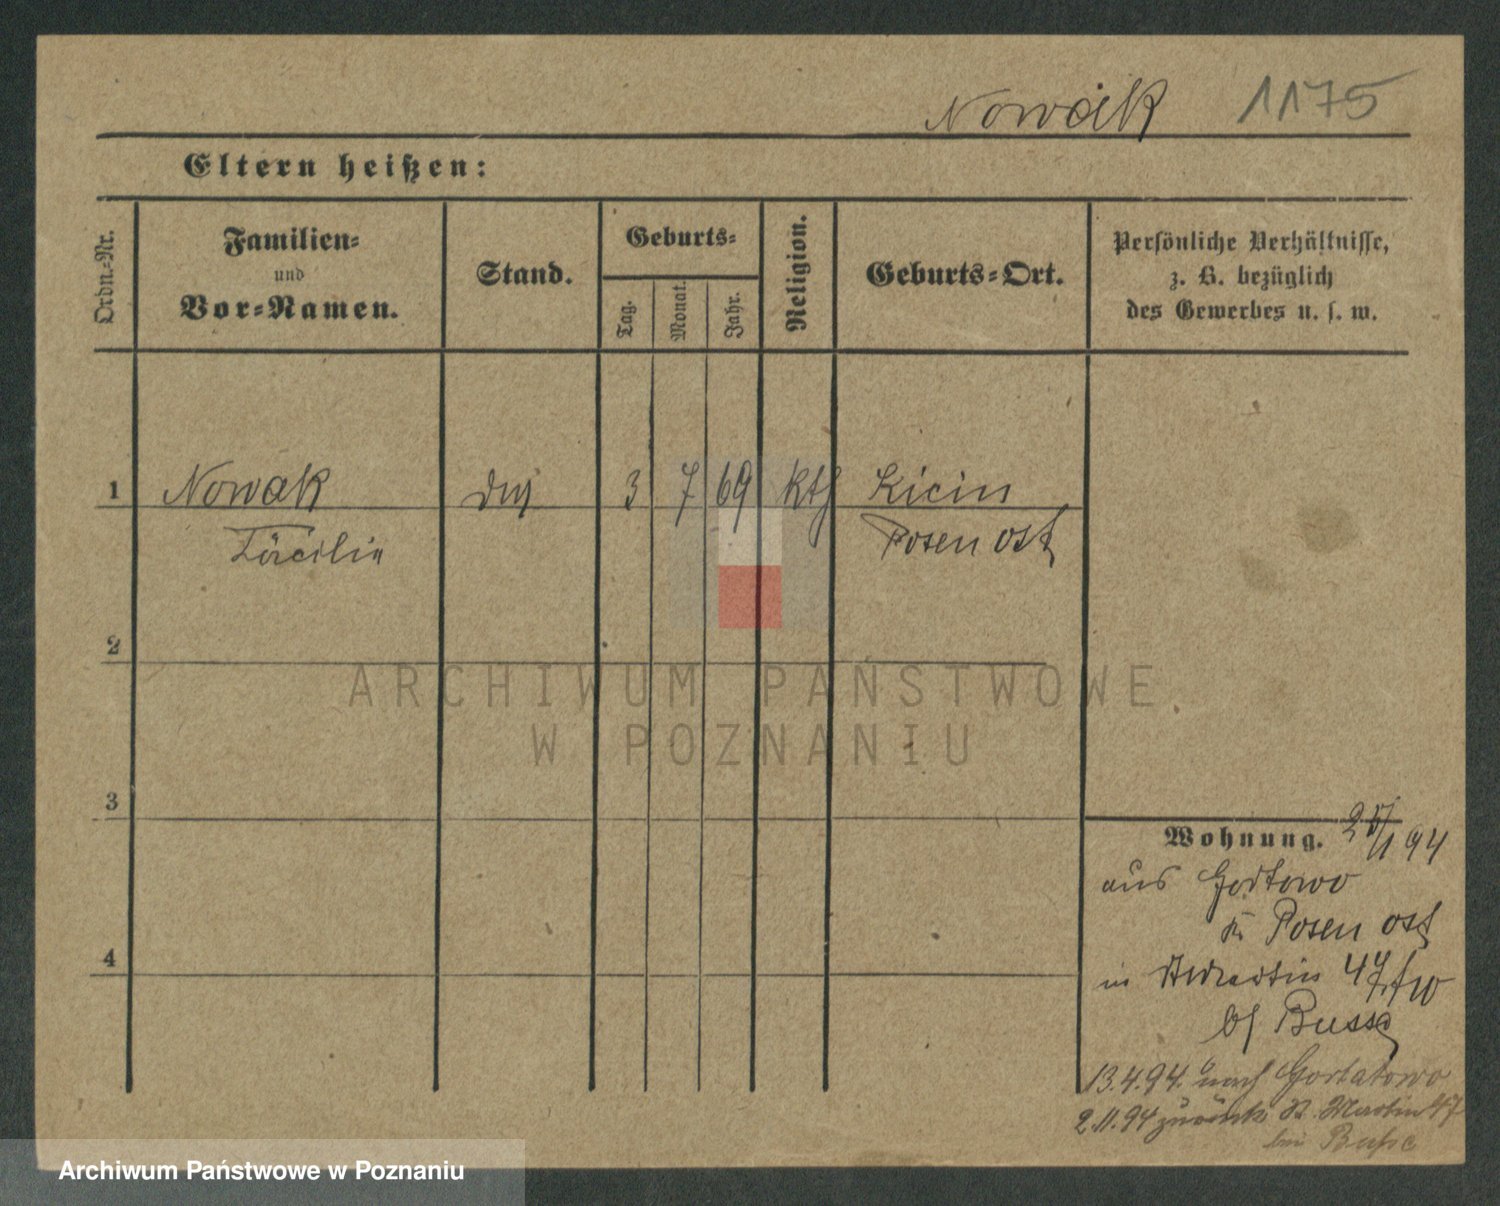 Nowak 1175
Eltern heißen:
Ordn.-Nr.
Familien-
und
Vor-Namen.
Stand.
Geburts-
Tag.
Monat.
Jahr.
Religion.
Geburts-Ort.
Persönliche Verhältnisse,
z. B. bezüglich
des Gewerbes u. s. w.
1 Nowak 3 7 69 kth Licin
Cäcilie Posen ost
2
ARCHIWUM PAŃSTWOWE
W POZNANIU
3
Wohnung. 25/1 94
aus
Posen ost
in St Martin 47
bei Busse
4
13.4.94. nach Gortatowo
2.11.94 zurück St. Martin 47
bei Busse
Archiwum Państwowe w Poznaniu